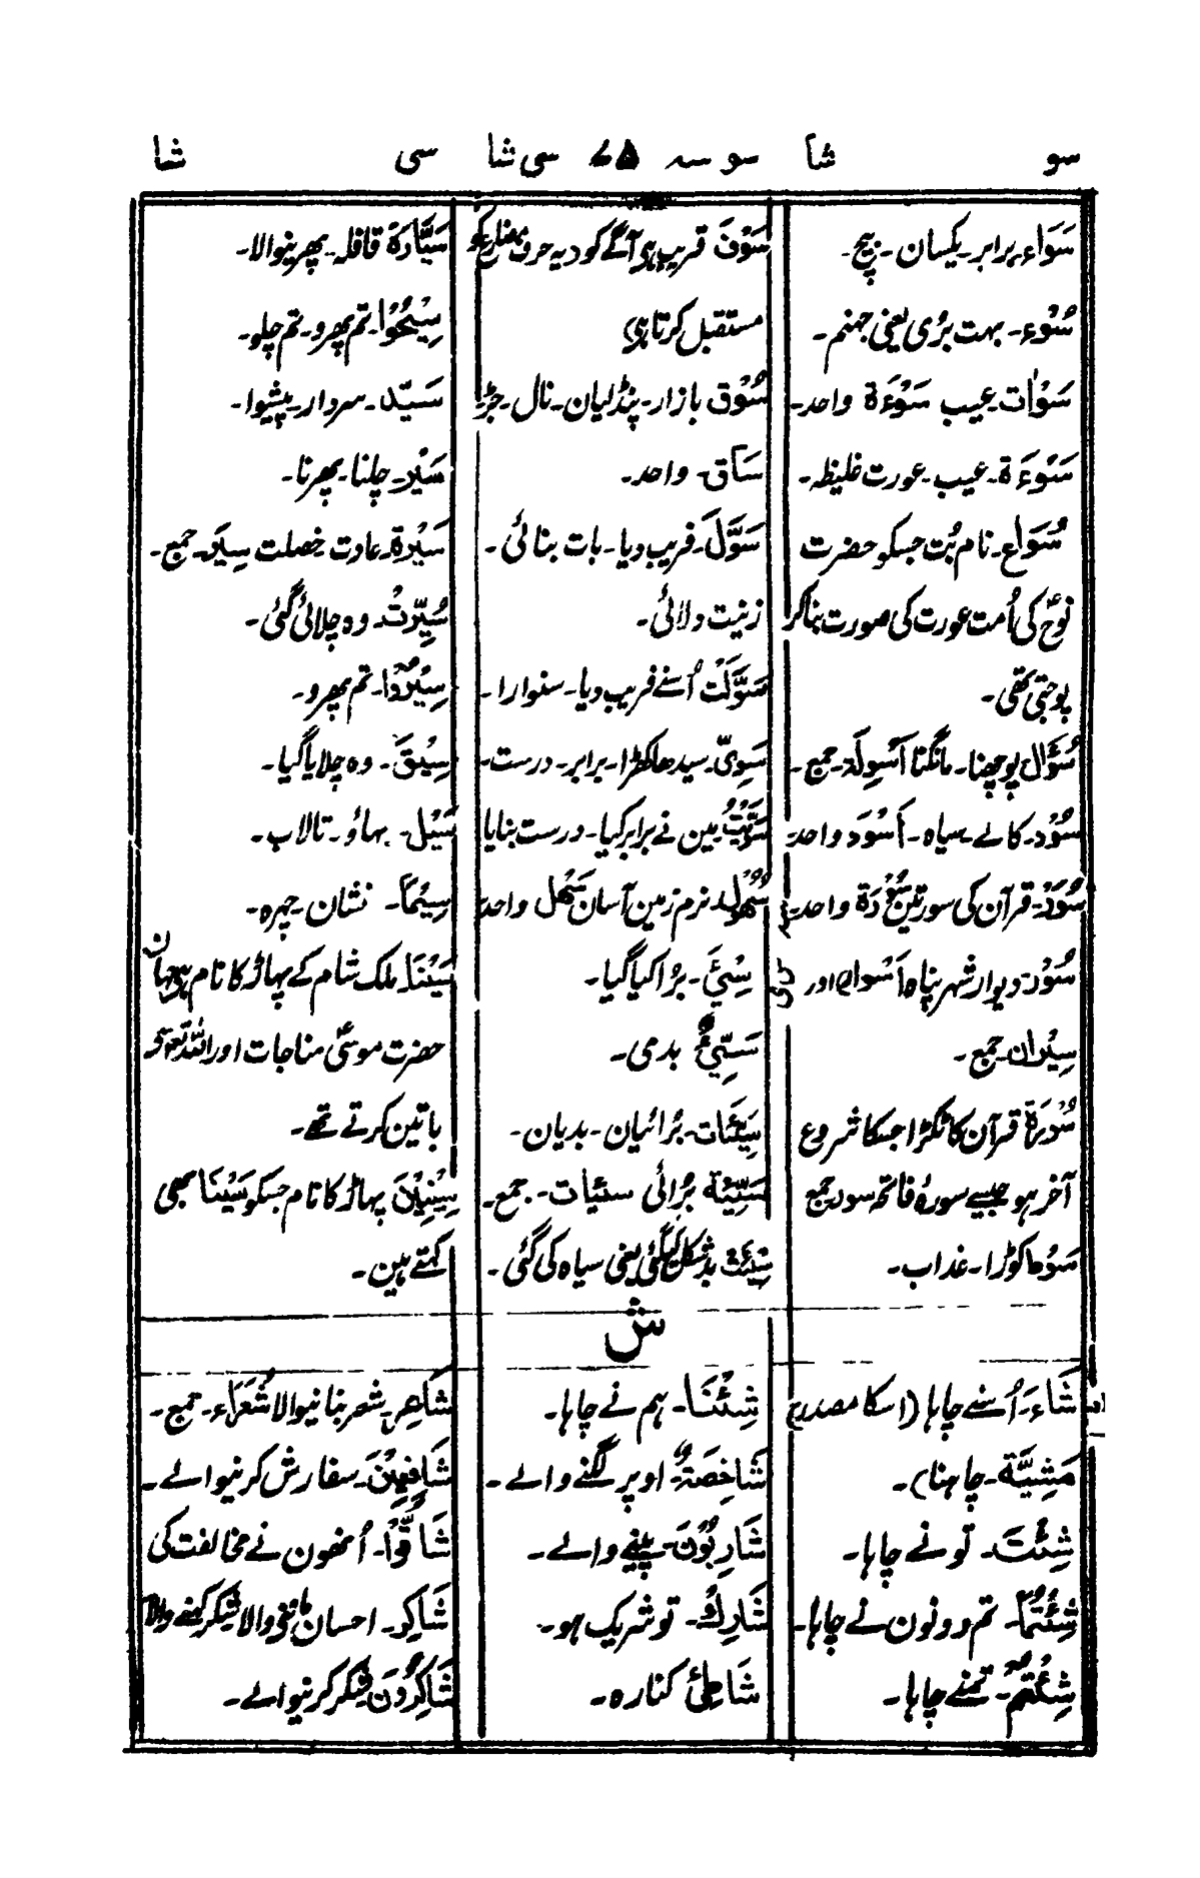 سو شا سو سہ ۷۵ سی شا سی شا
سَوَاء برابر۔ یکسان۔ بیچ۔
سُوْء۔ بہت بُری یعنی جہنم۔
سَوْاٰت۔ عیب سَوْءَة واحد۔
سَوْءَة۔ عیب۔ عورت غلیظہ۔
سُوَاع۔ نام بُت جسکو حضرت
نوحؑ کی اُمت عورت کی صورت بناکر
پوجتی تھی۔
سُؤَال پوچھنا۔ مانگنا اَسْوِلَة۔ جمع۔
سُوْد۔ کالے۔ سیاہ۔ اَسْوَد واحد۔
سُوَر۔ قرآن کی سورتین سُوْرَة واحد۔
سُوْر۔ دیوار شہر پناہ اَسْوار اور
سِیْران۔ جمع۔
سُوْرَة قرآن کا ٹکڑا جسکا شروع
آخر ہو جیسے سورۂ فاتحہ سور جمع
سَوْط کوڑا۔ عذاب۔
سَوْفَ قریب ہی آگے کو (یہ حرف مضارع کو
مستقبل کرتا ہی)
سُوْق بازار۔ پنڈلیان۔ نال۔ جڑ۔
سَاق۔ واحد۔
سَوَّلَ۔ فریب دیا۔ بات بنائی۔
زینت دلائی۔
سَوَّلَتْ اُسنے فریب دیا۔ سنوارا۔
سَوِیّ۔ سیدھا کھڑا۔ برابر۔ درست۔
سَوَّیْتُ مین نے برابر کیا۔ درست بنایا
سُهُوْل۔ نرم زمین آسان سَهْل واحد
سِیْٓءَ۔ بُرا کیا گیا۔
سَیِّئُ بدی۔
سَیِّئَات۔ بُرائیان۔ بدیان۔
سَیِّئَة بُرائی سئیات۔ جمع۔
سِیْئَتْ بدشکل کیگئی یعنی سیاہ کی گئی۔
سَیَّارَة قافلہ۔ پھرنیوالا۔
سِیْحُوْا۔ تم پھرو۔ تم چلو۔
سَیّد۔ سردار۔ پیشوا۔
سَیْر۔ چلنا۔ پھرنا۔
سِیْرة۔ عادت خصلت سِیَر۔ جمع۔
سُیِّرَتْ۔ وہ چلائی گئی۔
سِیْرُوْا۔ تم پھرو۔
سِیْقَ۔ وہ چلایا گیا۔
سَیْل۔ بہاؤ۔ تالاب۔
سِیْمَا۔ نشان۔ چہرہ۔
سَیْنَا۔ ملک شام کے پہاڑ کا نام ہی جہان
حضرت موسیٰؑ مناجات اور اللہ تعالیٰ سے
باتین کرتے تھے۔
سِیْنِیْنَ پہاڑ کا نام جسکو سَیْنَا بھی
کہتے ہین۔
ش
شَاءَ۔ اُسنے چاہا (اسکا مصدر ہی
مَشِیَّة۔ چاہنا)۔
شِئْتَ۔ تو نے چاہا۔
شِئْتُمَا۔ تم دونون نے چاہا۔
شِئْتُمْ۔ تمنے چاہا۔
شِئْنَا۔ ہم نے چاہا۔
شَاخِصَةٌ اوپر لگنے والے۔
شَارِبُوْنَ۔ پینے والے۔
شَارِكْ۔ تو شریک ہو۔
شَاطِئ کنارہ۔
شَاعِر۔ شعر بنانیوالا شُعَرَاء۔ جمع۔
شَافِعِیْنَ۔ سفارش کرنیوالے۔
شَاقُّوْا۔ اُنھون نے مخالفت کی
شَاكِر۔ احسان ماننے والا شکر کہنے والا
شَاكِرُوْنَ شکر کرنیوالے۔